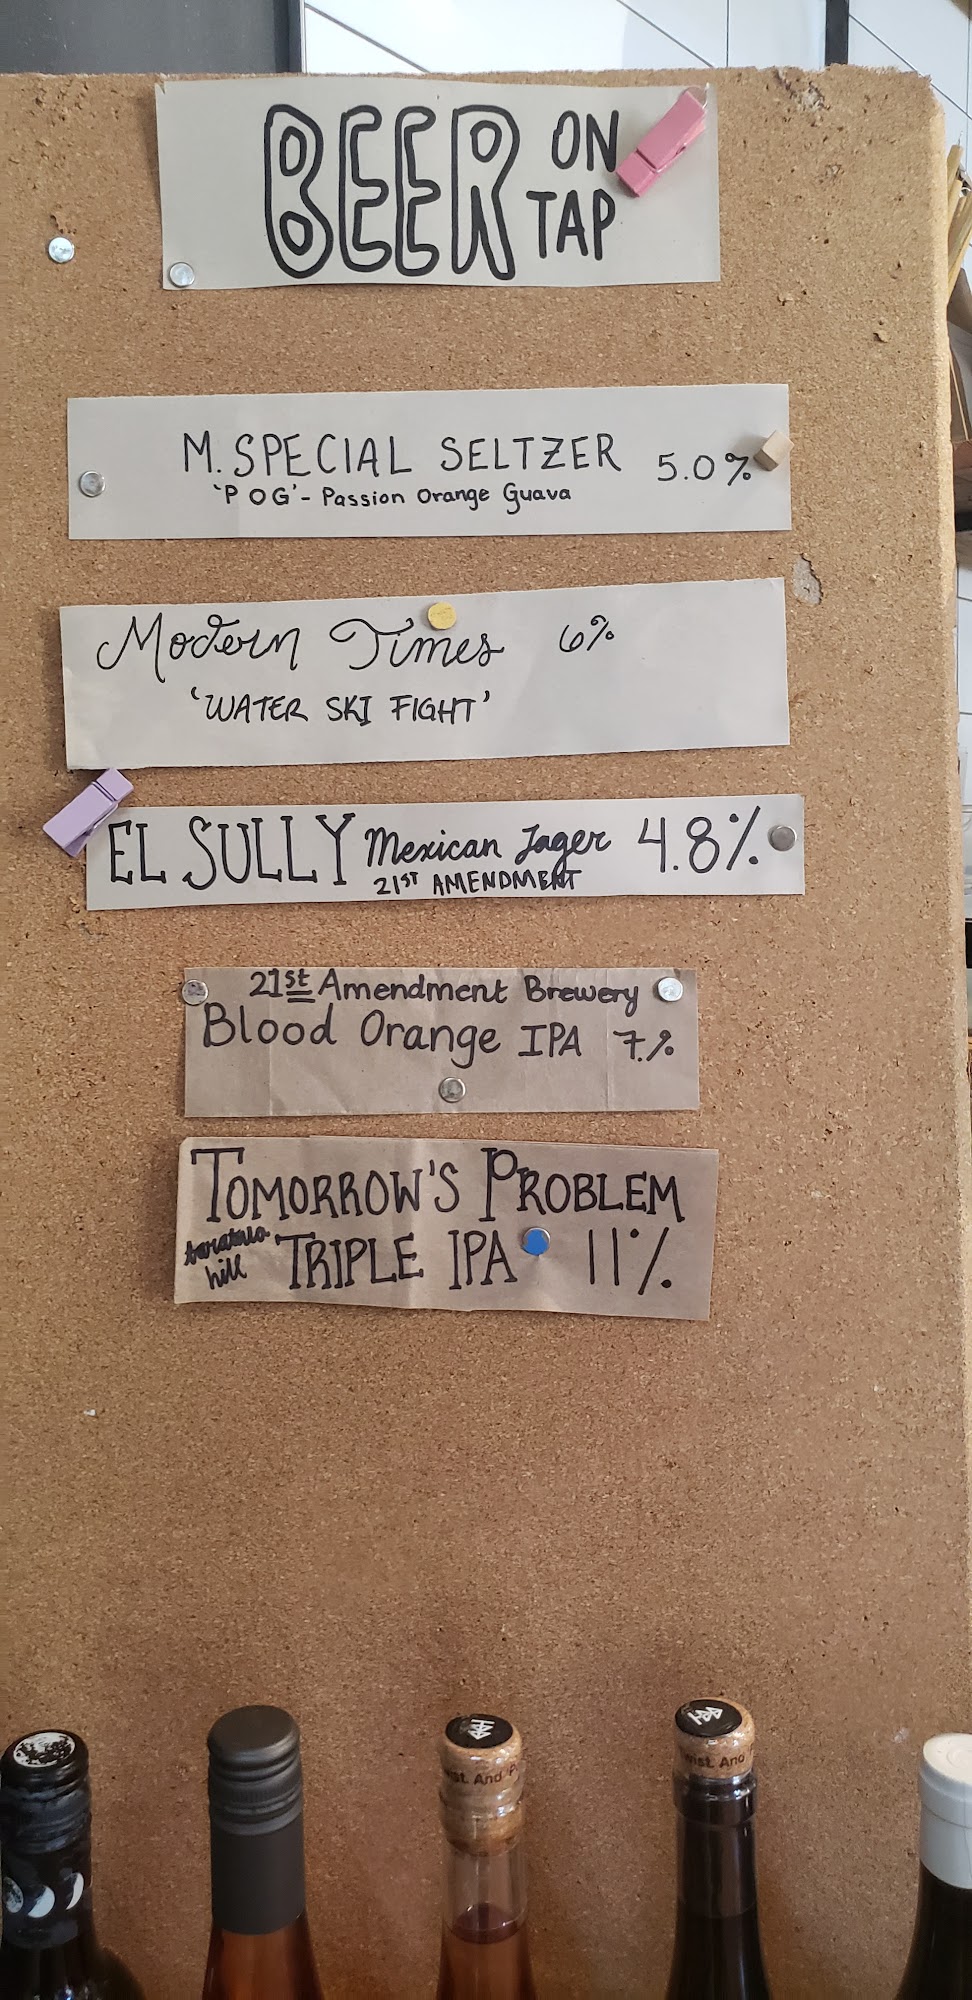 BEER ON
TAP
M. SPECIAL SELTZER 5.0%
'POG' - Passion Orange Guava
Modern Times 6%
'WATER SKI FIGHT'
EL SULLY Mexican Lager 4.8%
21ST AMENDMENT
21st Amendment Brewery
Blood Orange IPA 7.%
TOMORROW'S PROBLEM
TRIPLE IPA 11%
hill
wist. And P
wist. And